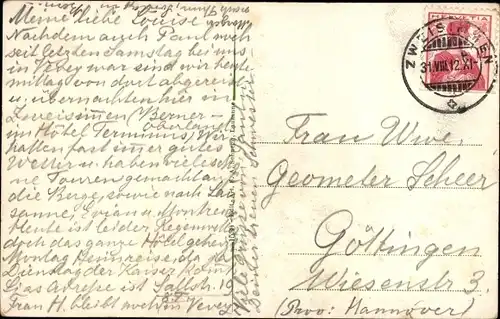 Meine liebe Louise!
Nachdem auch Paul
seit letzten Samstag bei uns
in Vevey war sind wir heute
mittag von dort abgereist
u. übernachten hier in
Zweisimmen (Berner-
oberland)
im Hôtel Terminus. Wir
hatten fast immer gutes
Wetter u. haben viele schö-
ne Touren gemacht an
die Berge, sowie nach Lau-
sanne, Evian u. Montreux
Heute ist leider Regenwetter
doch das ganze Hôtel geheizt
Montag Heimreise, da
Dienstag der Kaiser kommt
Lias Adresse ist
Frau H. bleibt noch in Vevey
Viele Grüsse von
Deiner treuen Schwester
HELVETIA
ZWEISIMMEN
31.VIII.12.XI
Frau Wwe.
Geometer Scheer
Göttingen
Wiesenstr. 3.
(Prov: Hannover)